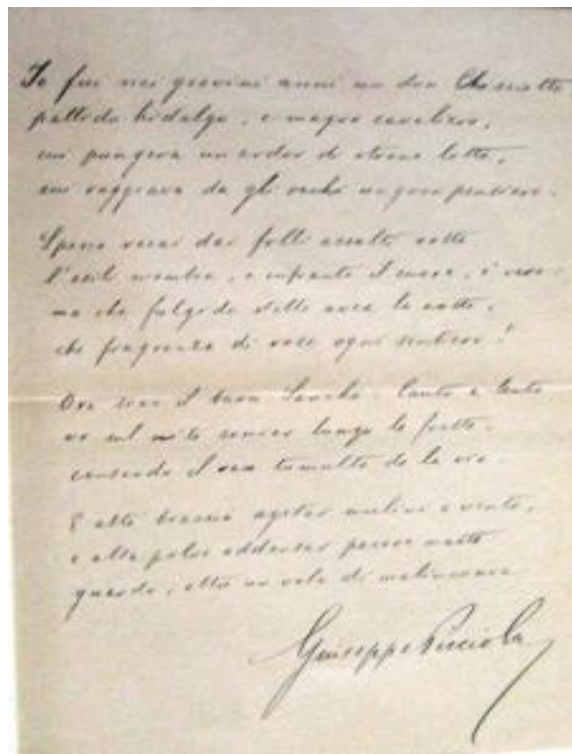 Io fui nei giovini anni un don Chisciotte
pallido hidalgo, e magro cavaliero,
mi pungeva un ardor di strane lotte,
mi raggiava da gli occhi un gran pensiero.
Spesso recai dai folli assalti rotte
l'esili membra, e infranto il cuore, è vero:
ma che fulgide stelle avea la notte,
che fragranza di rose ogni sentiero!
Ora sono il buon Sancho. Lento e lento
vo sul mite somier lungo le fratte,
cansando il van tumulto de la via.
E alte braccia agitar mulini a vento,
e alta polve addensar pecore matte
guardo, oltre un velo di malinconia
Giuseppe Picciola